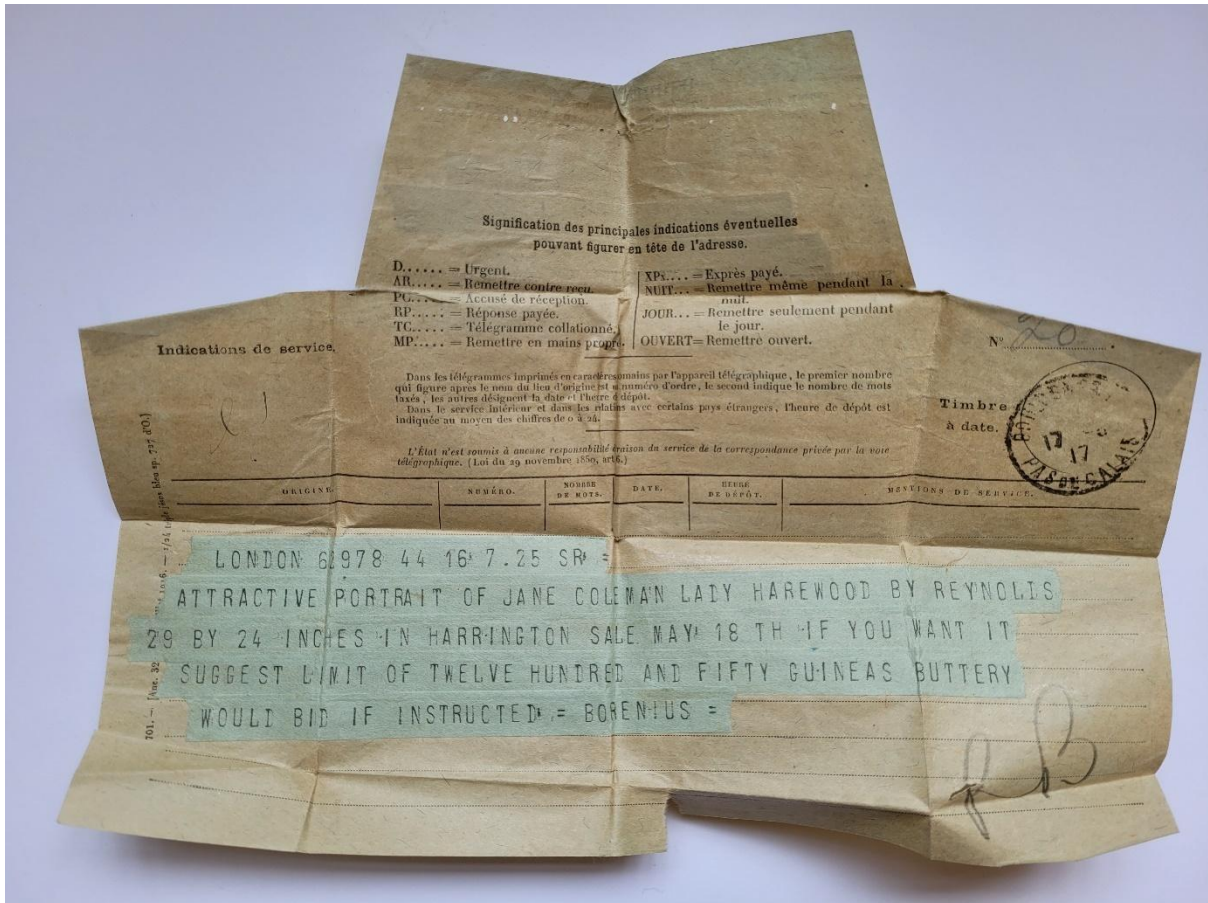 Signification des principales indications éventuelles
pouvant figurer en tête de l'adresse.
D...... = Urgent.
AR..... = Remettre contre reçu.
PC..... = Accusé de réception.
RP..... = Réponse payée.
TC..... = Télégramme collationné.
MP..... = Remettre en mains propre.
XPx.... = Exprès payé.
NUIT... = Remettre même pendant la
nuit.
JOUR... = Remettre seulement pendant
le jour.
OUVERT = Remettre ouvert.
Indications de service.
Nº 20 .
Timbre
à date.
17
17
PAS DE CALAIS
Dans les télégrammes imprimés en caractères romains par l'appareil télégraphique, le premier nombre
qui figure après le nom du lieu d'origine est numéro d'ordre, le second indique le nombre de mots
taxés, les autres désignent la date et l'heure dépôt.
Dans le service intérieur et dans les relations avec certains pays étrangers, l'heure de dépôt est
indiquée au moyen des chiffres de 0 à 24.
L'État n'est soumis à aucune responsabilité raison du service de la correspondance privée par la voie
télégraphique. (Loi du 29 novembre 1850, art. 6.)
ORIGINE. NUMÉRO. NOMBRE DATE. HEURE MENTIONS DE SERVICE.
DE MOTS. DE DÉPÔT.
LONDON 61978 44 16 7.25 SR =
ATTRACTIVE PORTRAIT OF JANE COLEMAN LADY HAREWOOD BY REYNOLIS
29 BY 24 INCHES IN HARRINGTON SALE MAY 18 TH IF YOU WANT IT
SUGGEST LIMIT OF TWELVE HUNDRED AND FIFTY GUINEAS BUTTERY
WOULD BID IF INSTRUCTED = BORENIUS =